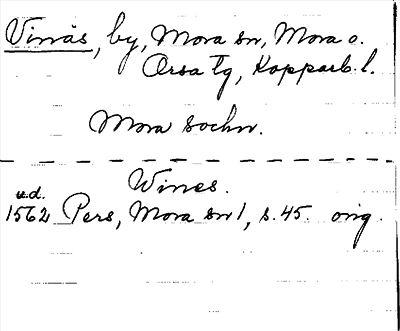 Vinäs, by, Mora sn, Mora o.
Orsa tg, Kopparb. l.
Mora sochn.
Wines.
u.d.
1562 Pers, Mora sn 1, s. 45. orig.